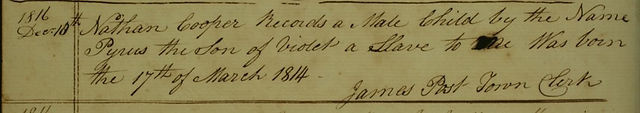 1816
Decr 10th
Nathan Cooper Records a Male Child by the Name
Pyrus the Son of Violet a Slave to me Was born
the 17th of March 1814
James Post Town Clerk